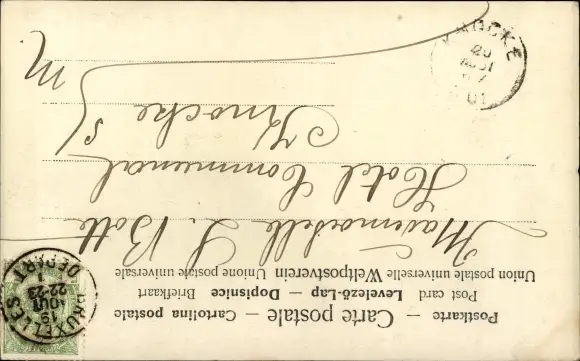 Postkarte — Carte postale — Cartolina postale
Post card — Levelező-Lap — Dopisnice — Briefkaart
Union postale universelle Weltpostverein Unione postale universale
BRUXELLES
19
AOUT
22-23
DEPART
Mademoiselle J. Bott
Hotel Communal
Knocke s/
m
KNOCKE
20
AOUT
01